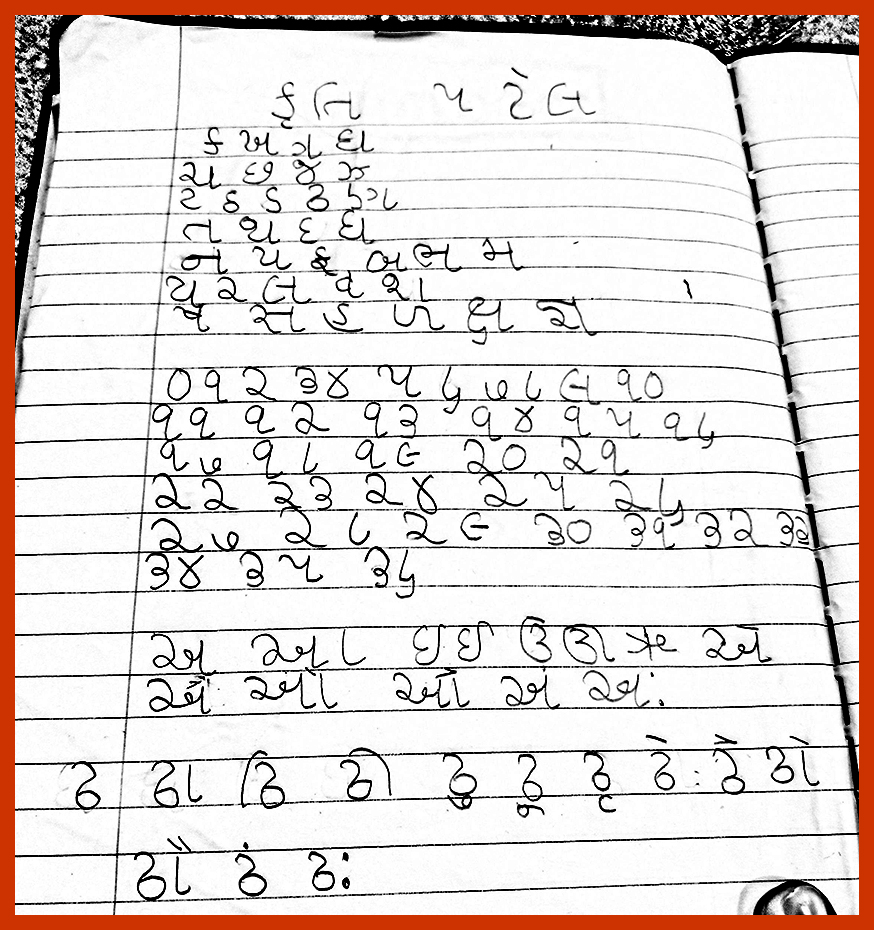 કૃતિ પટેલ
ક ખ ગ ઘ
ચ છ જ ઝ
ટ ઠ ડ ઢ ણ
ત થ દ ધ
ન પ ફ બ ભ મ
ય ર લ વ શ
ષ સ હ ળ ક્ષ જ્ઞ
૦ ૧ ૨ ૩ ૪ ૫ ૬ ૭ ૮ ૯ ૧૦
૧૧ ૧૨ ૧૩ ૧૪ ૧૫ ૧૬
૧૭ ૧૮ ૧૯ ૨૦ ૨૧
૨૨ ૨૩ ૨૪ ૨૫ ૨૬
૨૭ ૨૮ ૨૯ ૩૦ ૩૧ ૩૨ ૩૩
૩૪ ૩૫ ૩૬
અ આ ઇ ઈ ઉ ઊ ઋ એ
ઐ ઓ ઔ અં અઃ
ઢ ઢા ઢિ ઢી ઢુ ઢૂ ઢૃ ઢે ઢૈ ઢો
ઢૌ ઢં ઢઃ